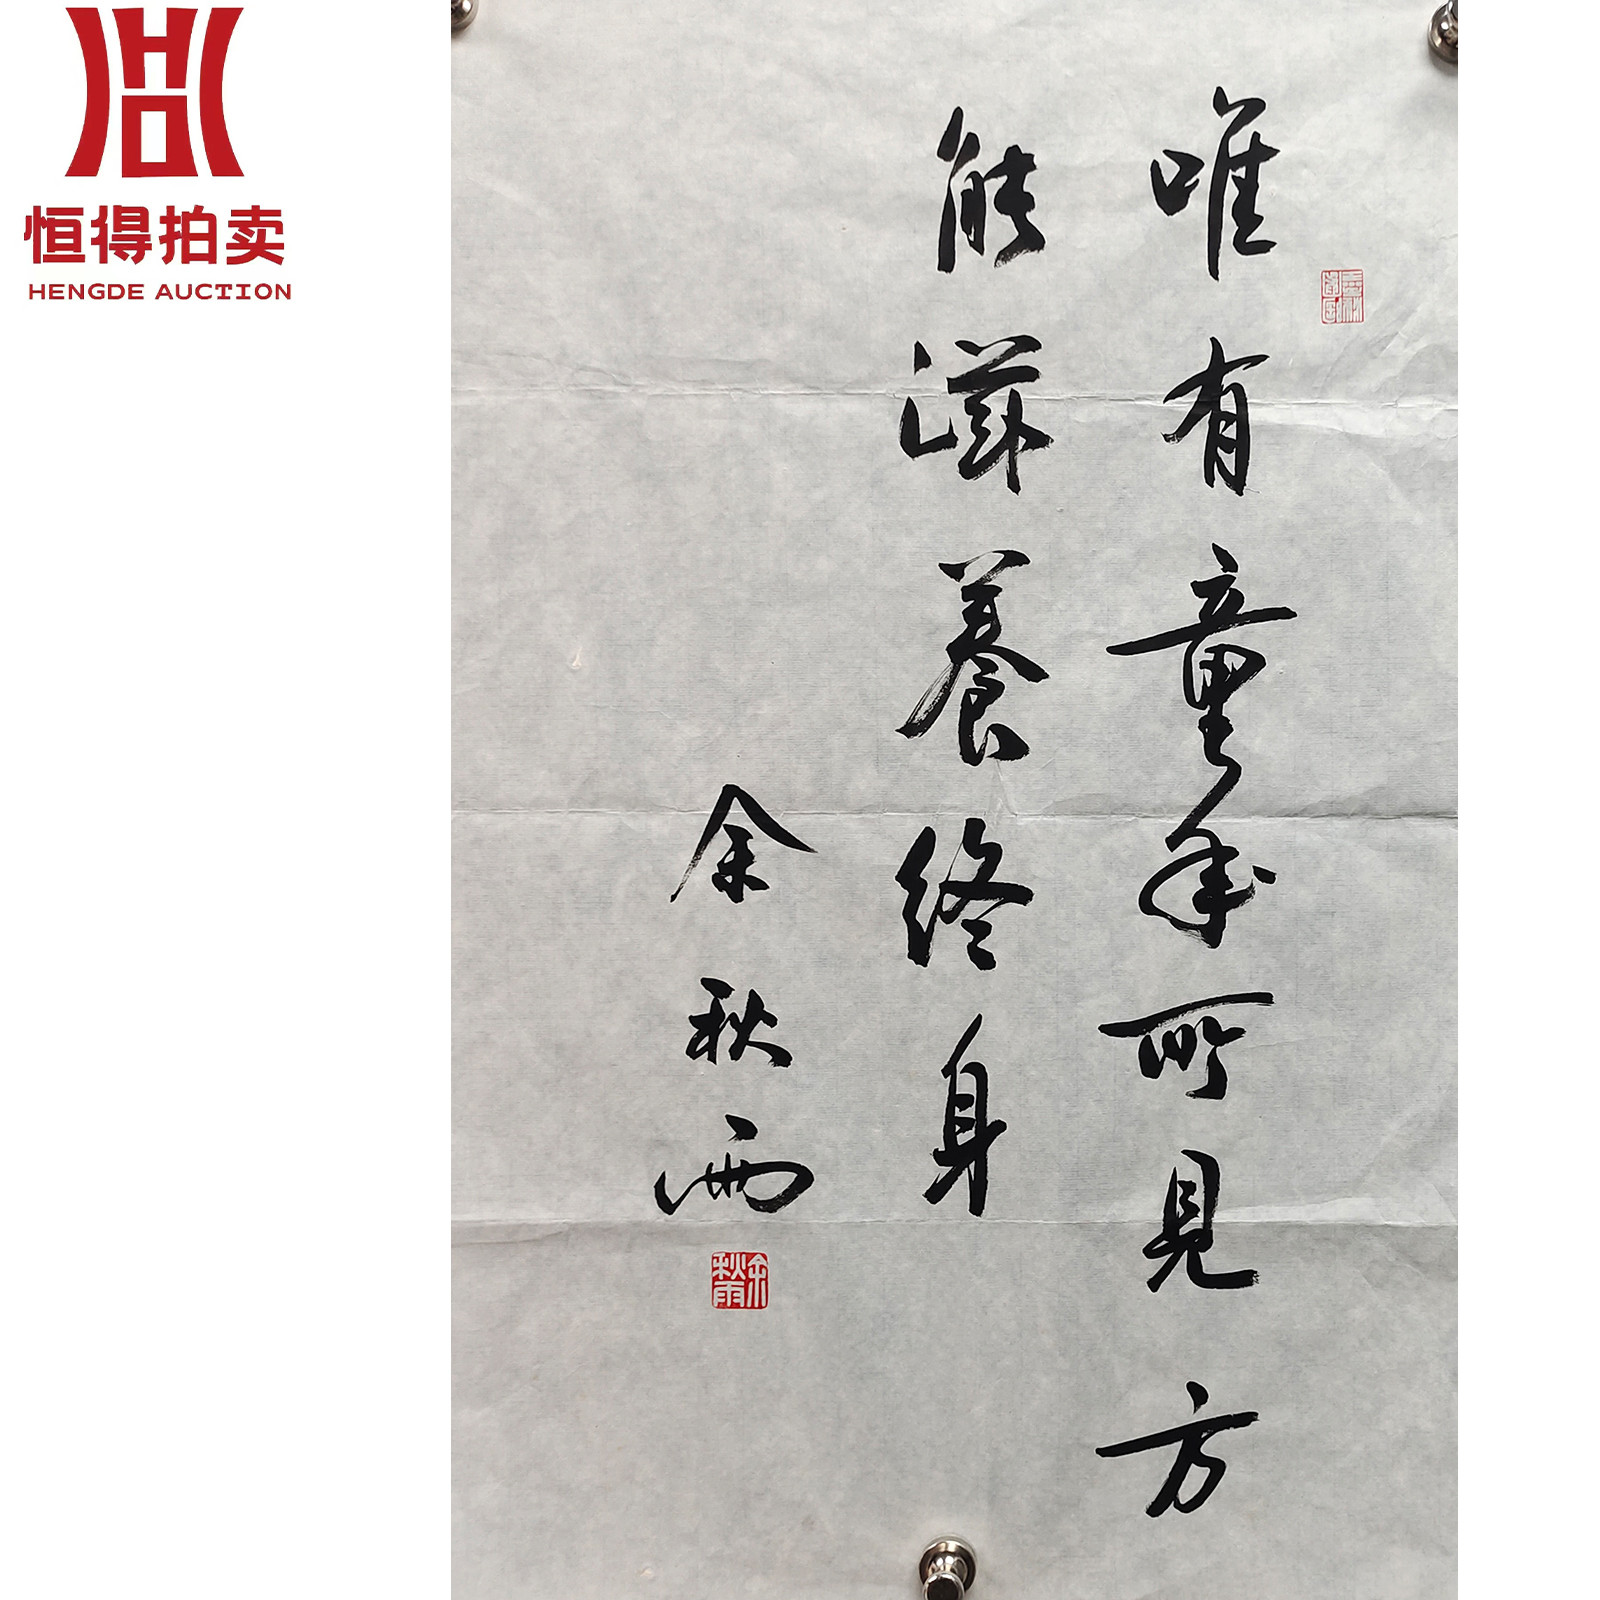 恒得拍卖
HENGDE AUCTION
唯有童年所見方
能滋養終身
余秋雨
余秋雨